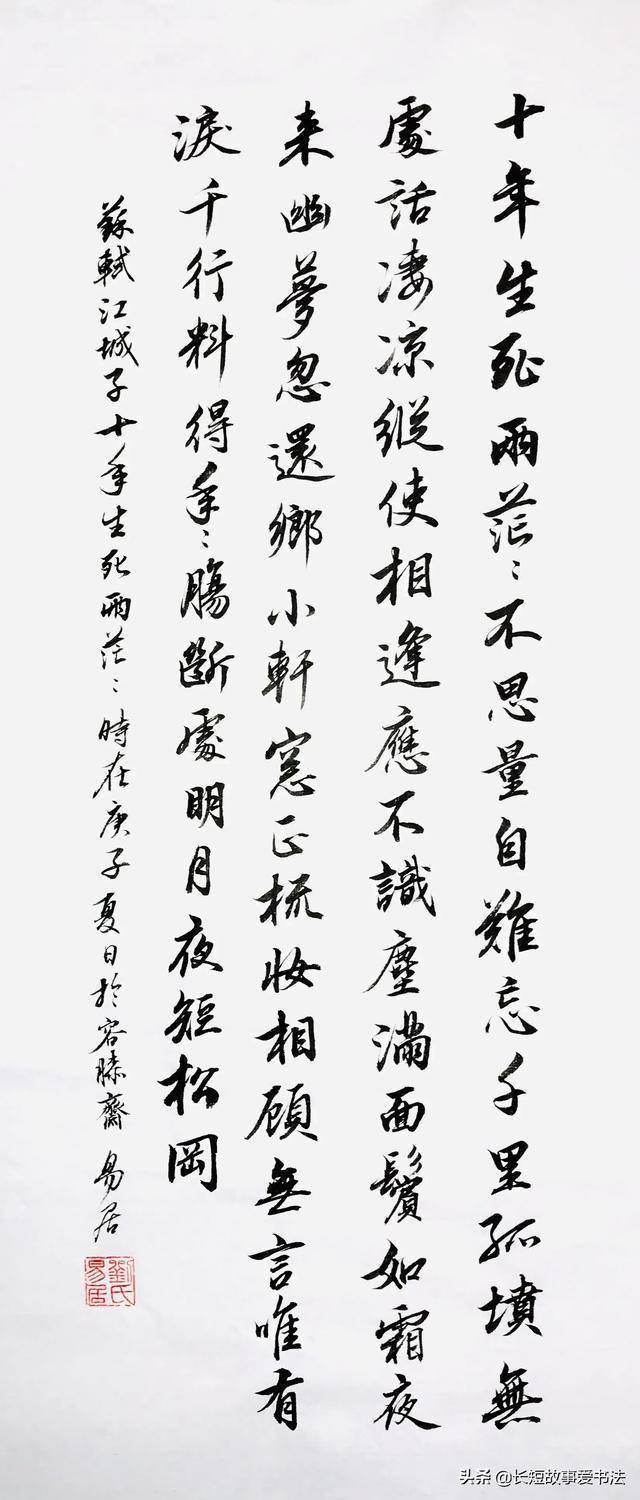 十年生死兩茫〻不思量自難忘千里孤墳無
處話淒涼縱使相逢應不識塵滿面鬢如霜夜
来幽夢忽還鄉小軒窗正梳妝相顧無言唯有
淚千行料得年〻腸斷處明月夜短松岡
蘇軾江城子十年生死兩茫〻時在庚子夏日於容膝齋易居
劉氏易居
头条 @长短故事爱书法